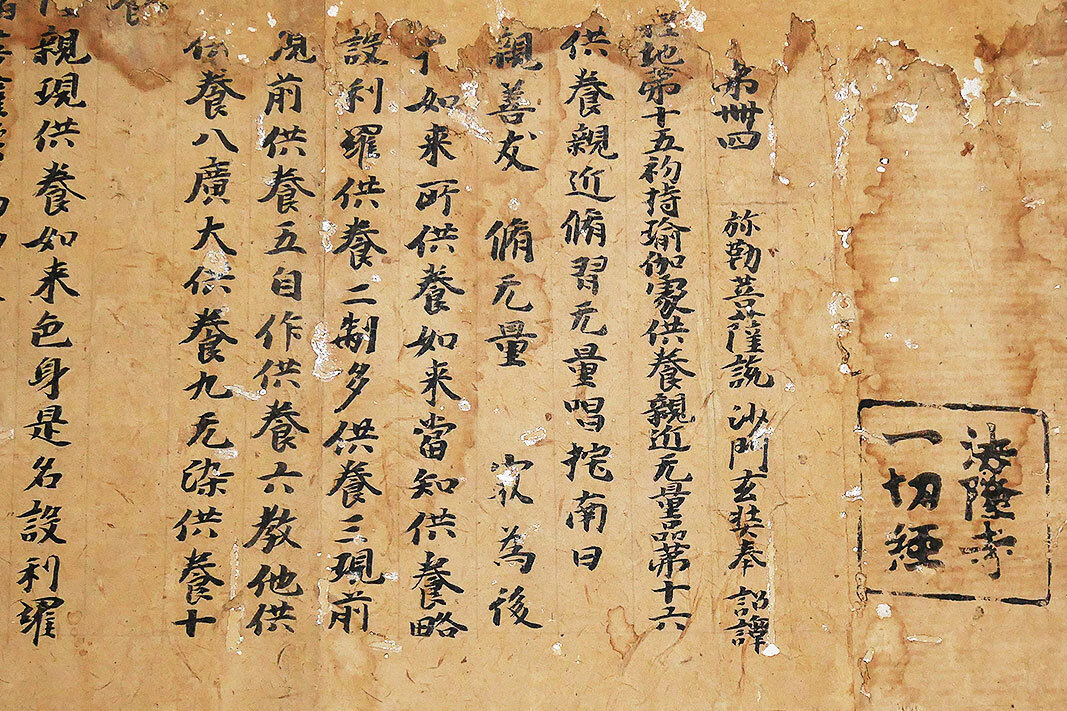 法隆寺
一切経
弟卌四　弥勒菩薩説　沙門玄奘奉　詔譯
地苐十五初持瑜伽處供養親近无量品苐十六
供養親近脩習无量唱拕南曰
親善友　脩无量　冣為後
如来所供養如来當知供養略
設利羅供養二制多供養三現前
現前供養五自作供養六教他供
供養八廣大供養九无染供養十
親現供養如来色身是名設利羅